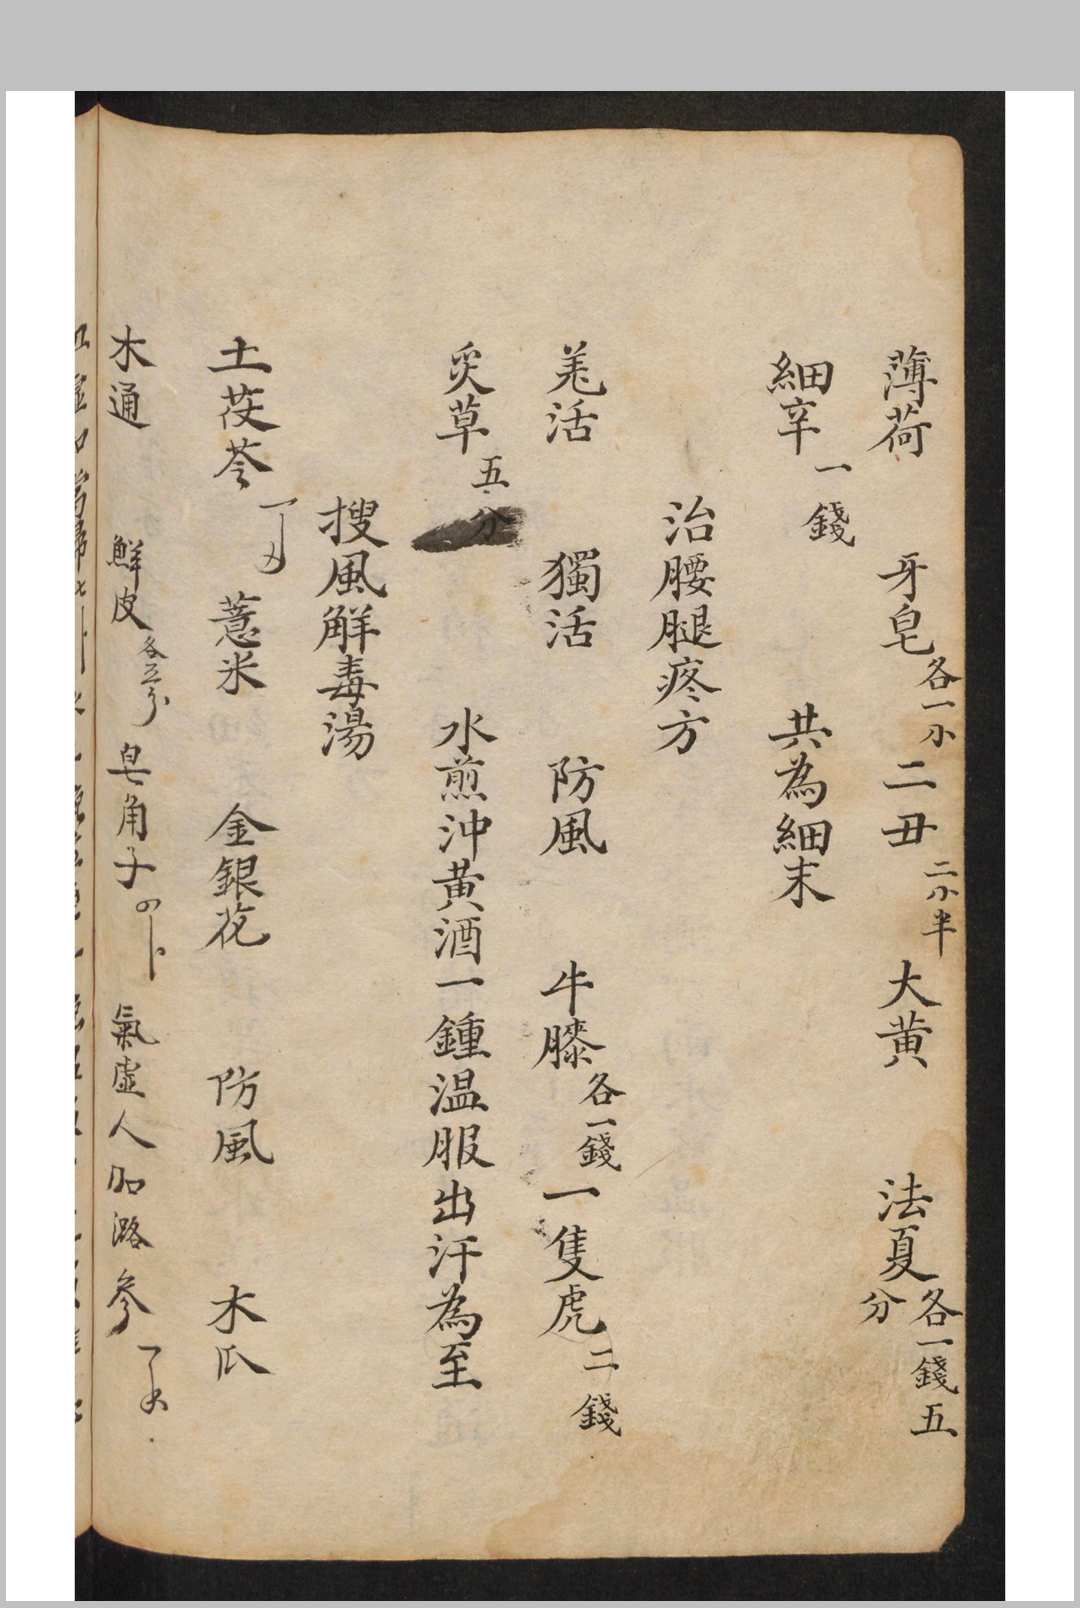 薄荷 牙皂各一小 二丑二小半 大黄 法夏各一錢五分
細辛一錢 共為細末
治腰腿疼方
羌活 獨活 防風 牛膝各一錢 一隻虎二錢
炙草五分 水煎沖黃酒一鍾温服出汗為至
搜風解毒湯
土茯苓 薏米 金銀花 防風 木瓜
木通 鮮皮各五分 皂角子 氣虛人加潞參